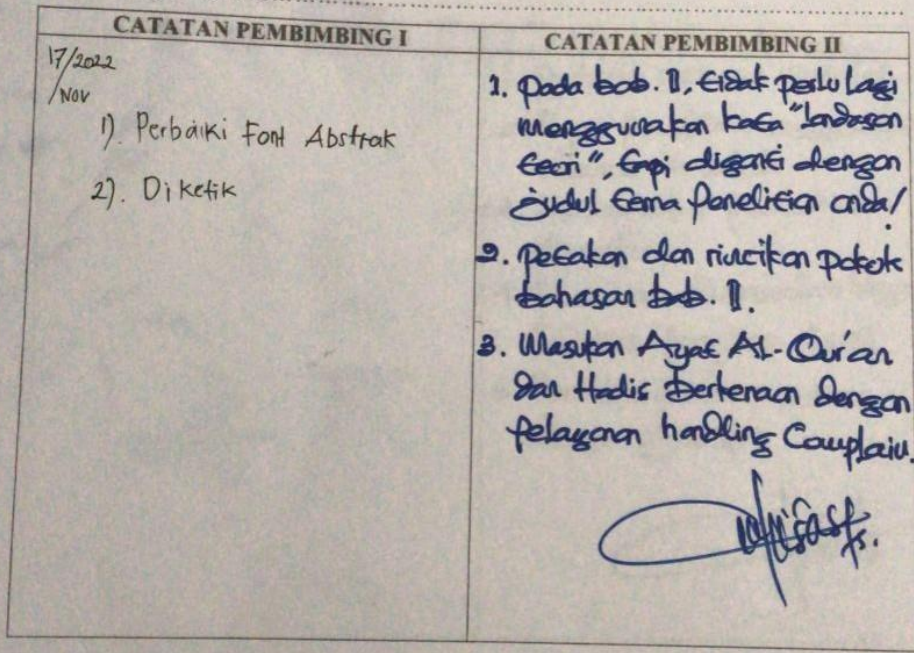 CATATAN PEMBIMBING I
17/2022
/Nov
1). Perbaiki Font Abstrak
2). Diketik
CATATAN PEMBIMBING II
1. Pada bab. II, tidak perlu lagi
menggunakan kata "landasan
teori", tapi diganti dengan
judul tema penelitian anda!
2. Petakan dan rincikan pokok
bahasan bab. II.
3. Masukan Ayat Al-Qur'an
dan Hadis berkenaan dengan
pelayanan handling Complain.